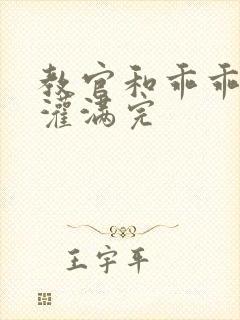 教官和乖乖
灌满完
王宇平